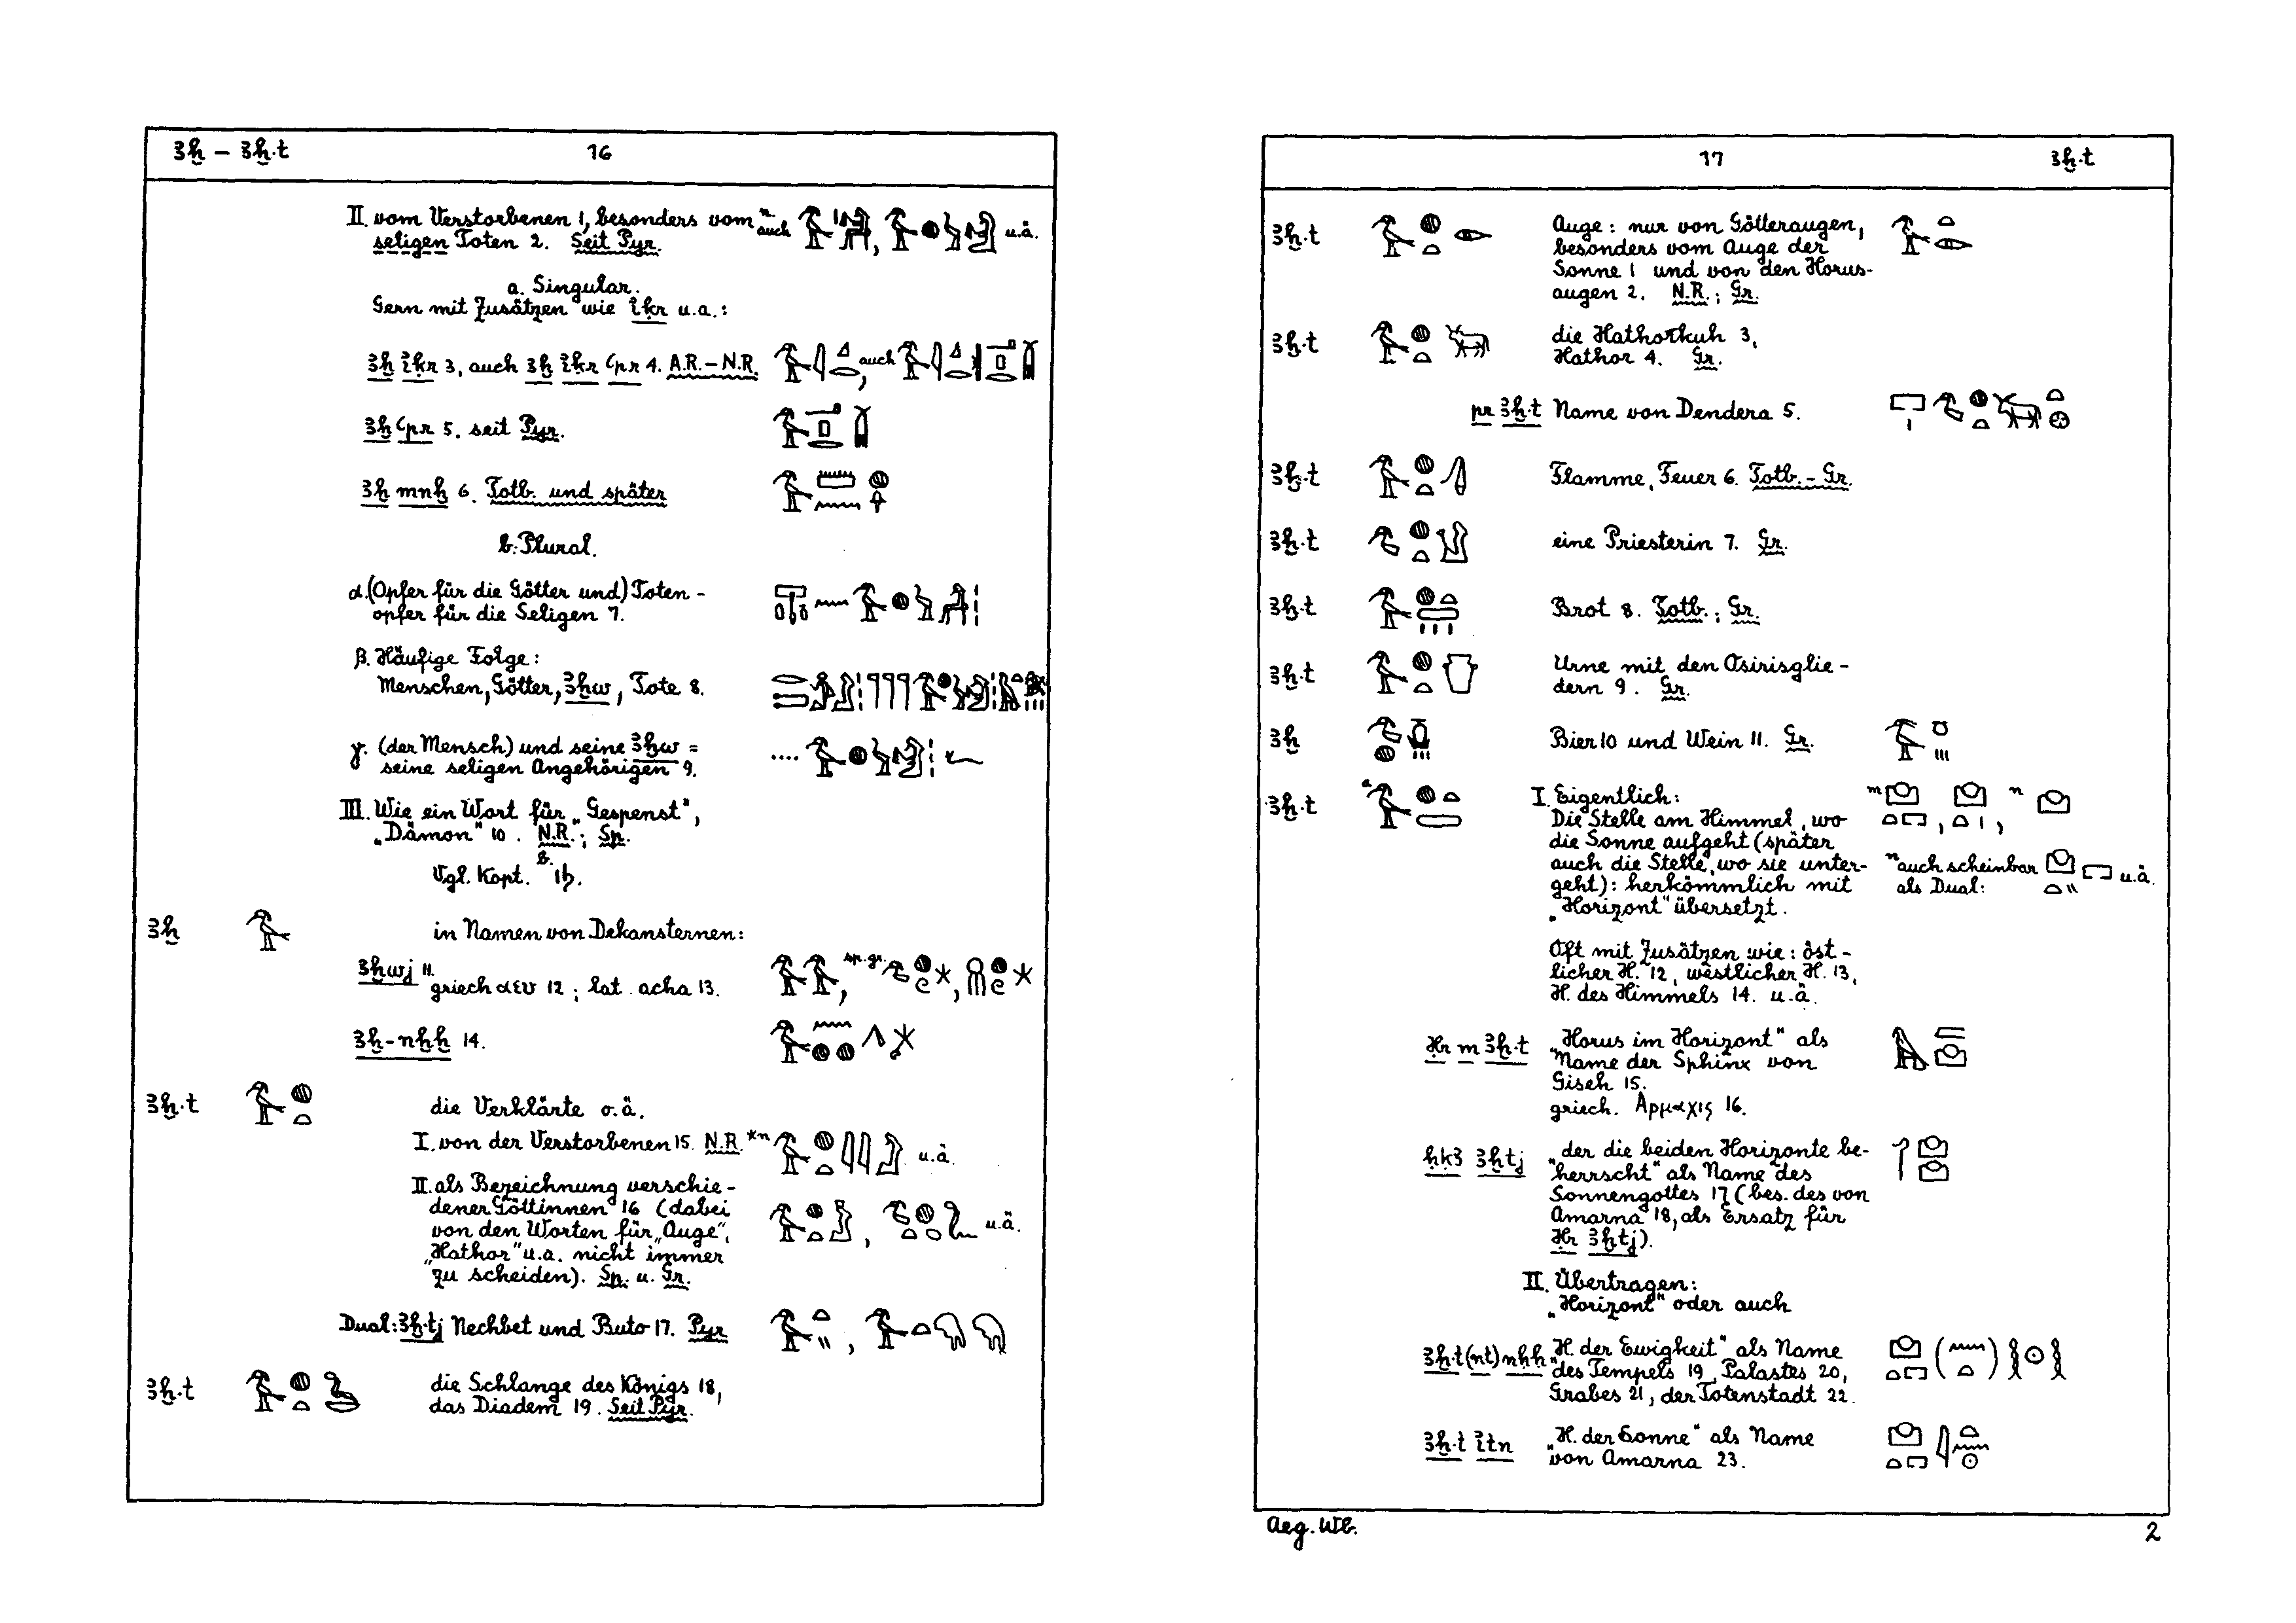 ꜣḫ – ꜣḫ.t 16
II. vom Verstorbenen 1, besonders vom
seligen Toten 2. Seit Pyr.
auch u.ä.
a. Singular.
Gern mit Zusätzen wie i҆ḳr u.a.:
ꜣḫ i҆ḳr 3, auch ꜣḫ i҆ḳr ꜥpr 4. A.R.–N.R.
, auch
ꜣḫ ꜥpr 5. seit Pyr.
ꜣḫ mnḫ 6. Totb. und später
b. Plural.
α. (Opfer für die Götter und) Toten-
opfer für die Seligen 7.
β. Häufige Folge:
Menschen, Götter, ꜣḫw, Tote 8.
γ. (der Mensch) und seine ꜣḫw =
seine seligen Angehörigen 9.
III. Wie ein Wort für „Gespenst“,
„Dämon“ 10. N.R.; Sp.
Vgl. Kopt. B. ⲓϧ.
ꜣḫ in Namen von Dekansternen:
ꜣḫwj 11.
griech αευ 12; lat. acha 13.
sp. gr.
ꜣḫ-nḫḫ 14.
ꜣḫ.t die Verklärte o.ä.
I. von der Verstorbenen 15. N.R. *n u.ä.
II. als Bezeichnung verschie-
dener Göttinnen 16 (dabei
von den Worten für „Auge“,
„Hathor“ u.a. nicht immer
zu scheiden). Sp. u. Gr.
u.ä.
Dual: ꜣḫ.tj Nechbet und Buto 17. Pyr
ꜣḫ.t die Schlange des Königs 18,
das Diadem 19. Seit Pyr.
17 ꜣḫ.t
ꜣḫ.t Auge: nur von Götteraugen,
besonders vom Auge der
Sonne 1 und von den Horus-
augen 2. N.R.; Gr.
ꜣḫ.t die Hathorkuh 3,
Hathor 4. Gr.
pr ꜣḫ.t Name von Dendera 5.
ꜣḫ.t Flamme, Feuer 6. Totb.–Gr.
ꜣḫ.t eine Priesterin 7. Gr.
ꜣḫ.t Brot 8. Totb.; Gr.
ꜣḫ.t Urne mit den Osirisglie-
dern 9. Gr.
ꜣḫ Bier 10 und Wein 11. Gr.
ꜣḫ.t I. Eigentlich:
Die Stelle am Himmel, wo
die Sonne aufgeht (später
auch die Stelle, wo sie unter-
geht): herkömmlich mit
„Horizont“ übersetzt.
m n
n auch scheinbar
als Dual: u.ä.
Oft mit Zusätzen wie: öst-
licher H. 12, westlicher H. 13,
H. des Himmels 14. u.ä.
Ḥr m ꜣḫ.t „Horus im Horizont“ als
Name der Sphinx von
Giseh 15.
griech. Ἁρμαχις 16.
ḥḳꜣ ꜣḫtj „der die beiden Horizonte be-
herrscht“ als Name des
Sonnengottes 17 (bes. des von
Amarna 18, als Ersatz für
Ḥr ꜣḫtj).
II. Übertragen:
„Horizont“ oder auch
ꜣḫ.t (nt) nḥḥ „H. der Ewigkeit“ als Name
des Tempels 19, Palastes 20,
Grabes 21, der Totenstadt 22.
ꜣḫ.t i҆tn „H. der Sonne“ als Name
von Amarna 23.
Aeg. Wb. 2